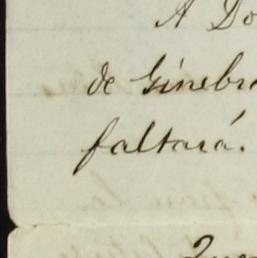 A Do
de Ginebr
faltará.
Que